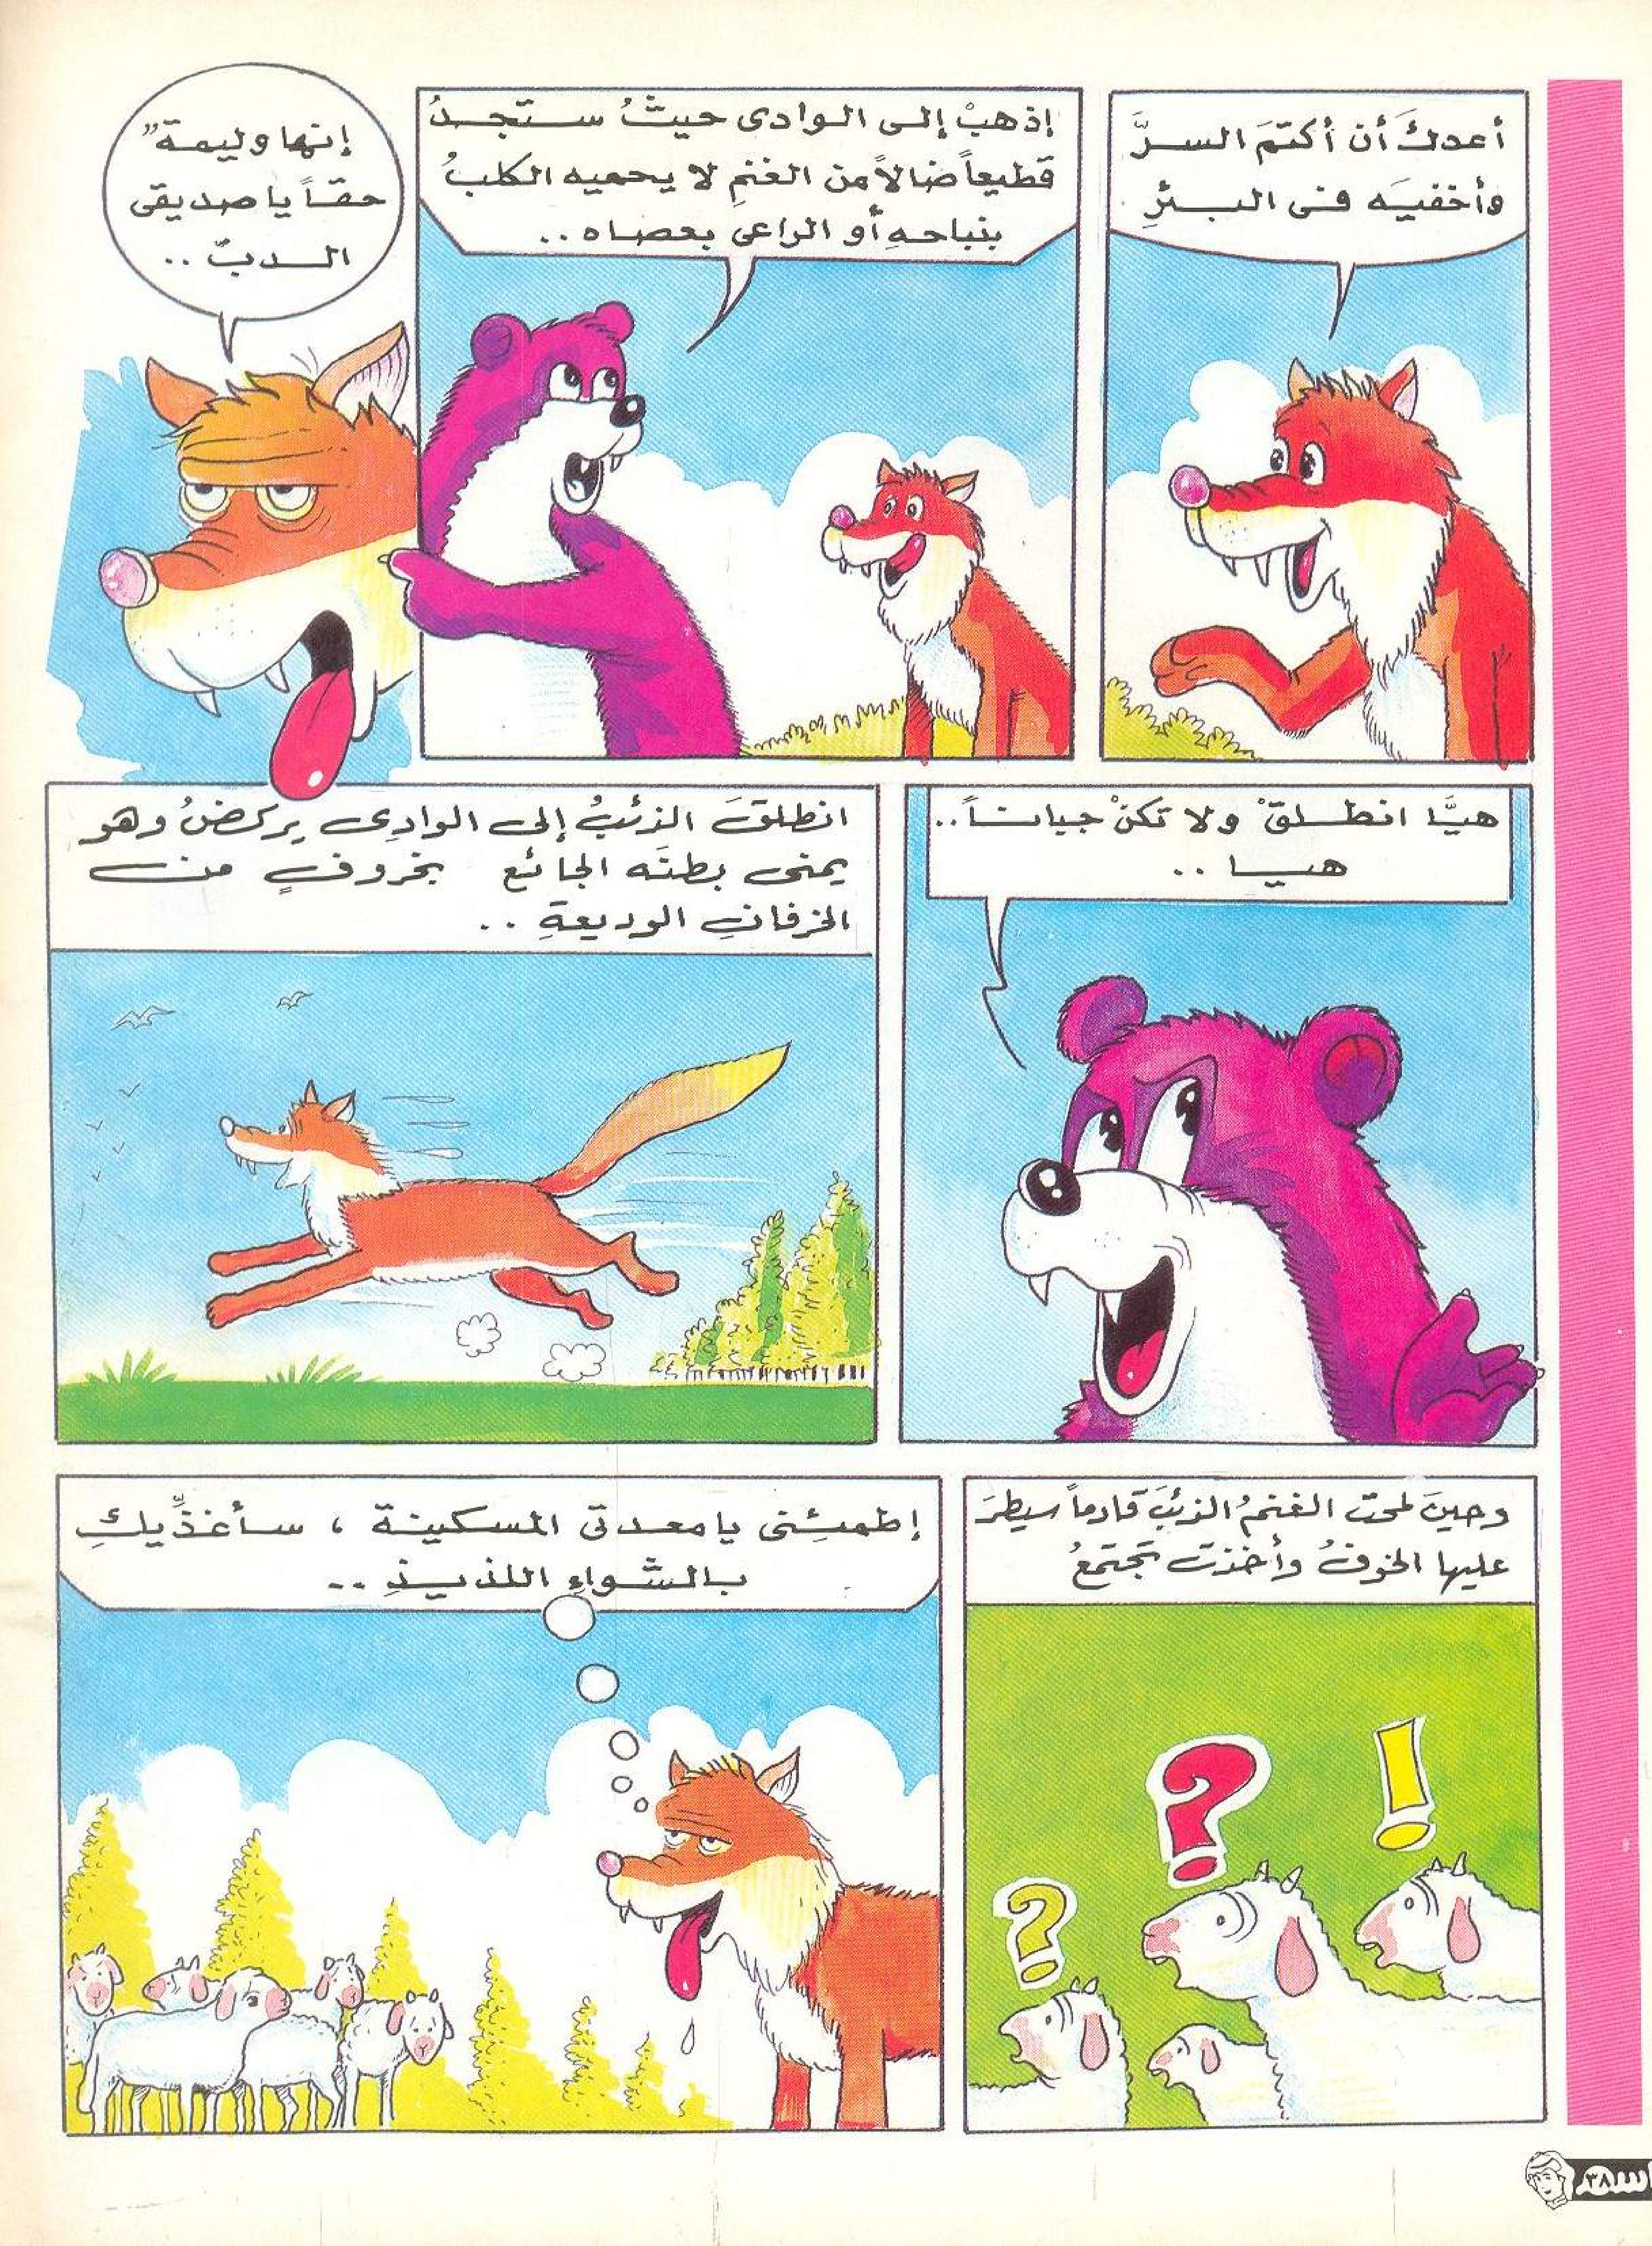 أعدكَ أن أكتمَ السرَّ
وأخفيَه فى البئرِ
إذهبْ إلى الوادى حيثُ ستجدُ
قطيعاً ضالاً من الغنمِ لا يحميه الكلبُ
بنباحهِ أو الراعى بعصاه..
إنها وليمة"
حقاً يا صديقى
الدبّ..
هيَّا انطلقْ ولا تكنْ جباناً..
هيا..
انطلقَ الذئبُ إلى الوادِى يركضُ وهو
يمنى بطنَه الجائع بخروفٍ من
الخرفانِ الوديعةِ..
وحينَ لمحت الغنمُ الذئبَ قادماً سيطرَ
عليها الخوفُ وأخذت تجتمعُ
إطمئِنى يا معدتى المسكينة ، سأغذِّيكِ
بالشّواءِ اللذيذِ..
؟
؟
!
باسم
٣٨